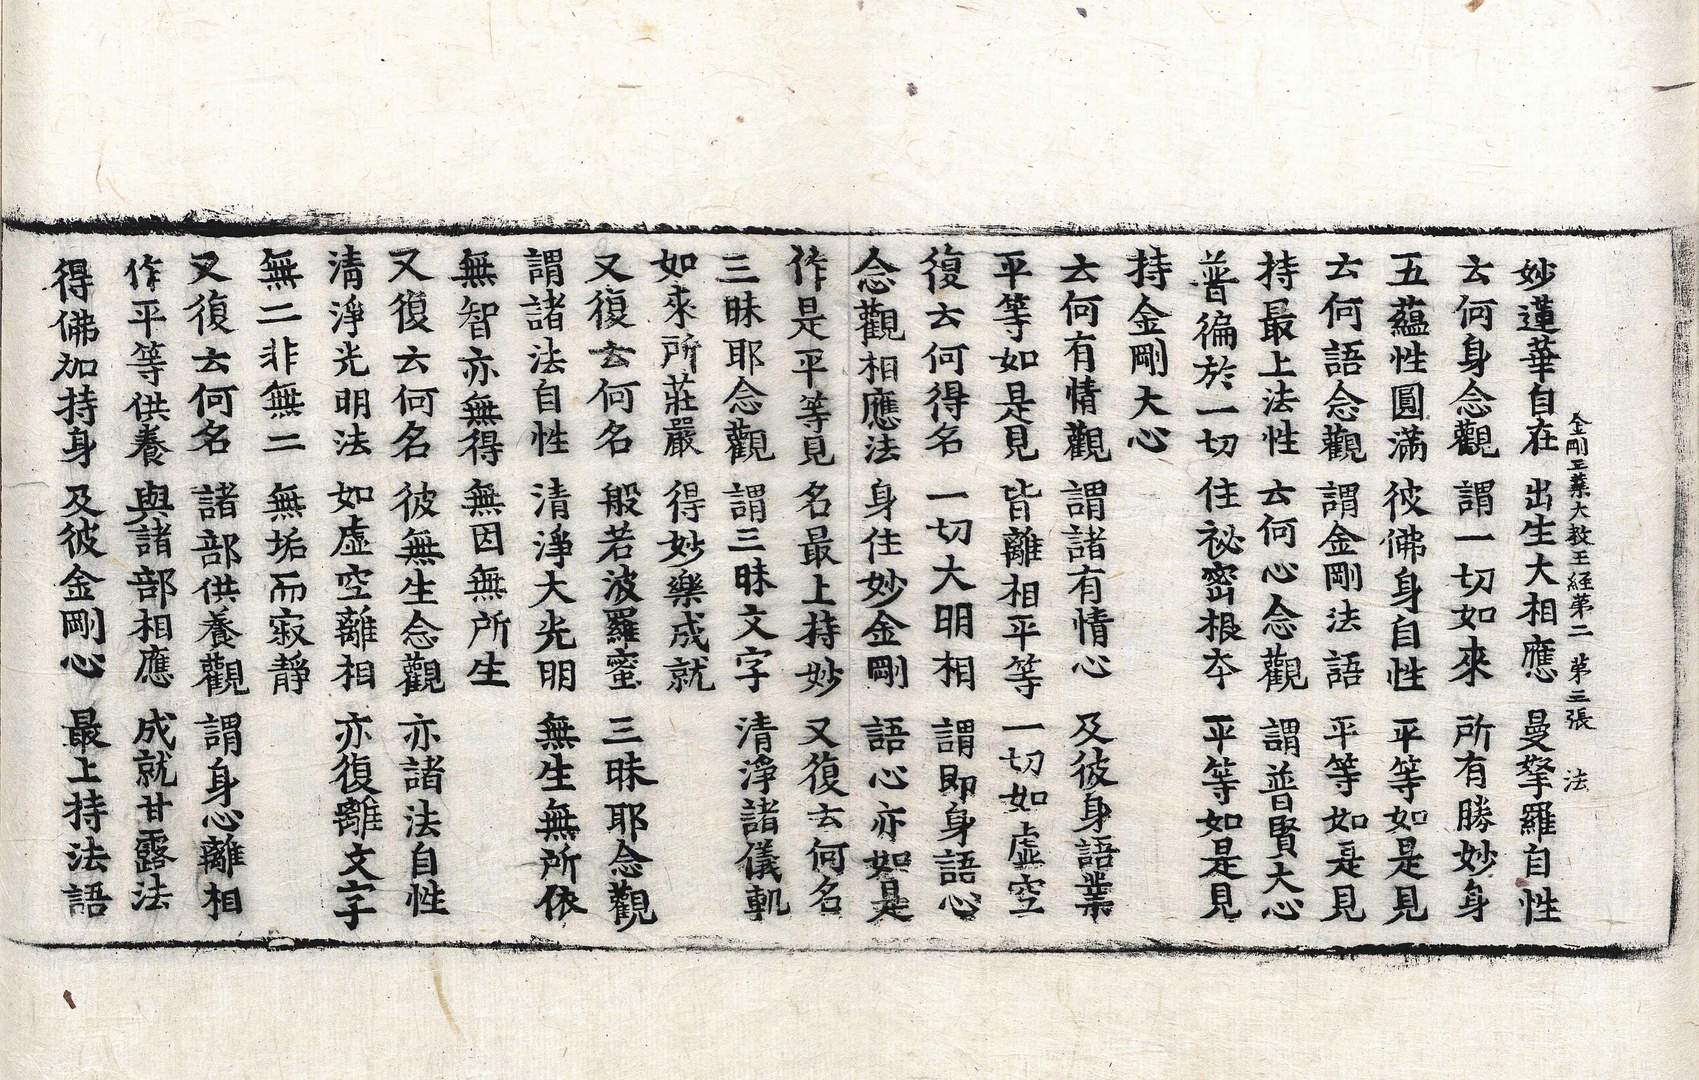 金剛三業大教王經第二　第三張　法
妙蓮華自在　出生大相應　曼拏羅自性
云何身念觀　謂一切如來　所有勝妙身
五蘊性圓滿　彼佛身自性　平等如是見
云何語念觀　謂金剛法語　平等如是見
持最上法性　云何心念觀　謂普賢大心
普徧於一切　住祕密根本　平等如是見
持金剛大心
云何有情觀　謂諸有情心　及彼身語業
平等如是見　皆離相平等　一切如虛空
復云何得名　一切大明相　謂即身語心
念觀相應法　身住妙金剛　語心亦如是
作是平等見　名最上持妙　又復云何名
三昧耶念觀　謂三昧文字　清淨諸儀軌
如來所莊嚴　得妙樂成就
又復云何名　般若波羅蜜　三昧耶念觀
謂諸法自性　清淨大光明　無生無所依
無智亦無得　無因無所生
又復云何名　彼無生念觀　亦諸法自性
清淨光明法　如虛空離相　亦復離文字
無二非無二　無垢而寂靜
又復云何名　諸部供養觀　謂身心離相
作平等供養　與諸部相應　成就甘露法
得佛加持身　及彼金剛心　最上持法語